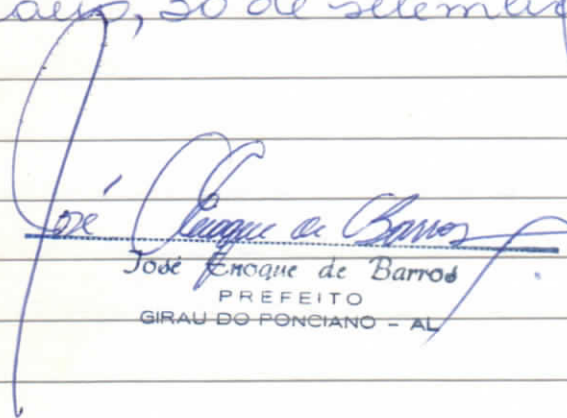 30 de setembro
José Enoque de Barros
José Enoque de Barros
PREFEITO
GIRAU DO PONCIANO - AL